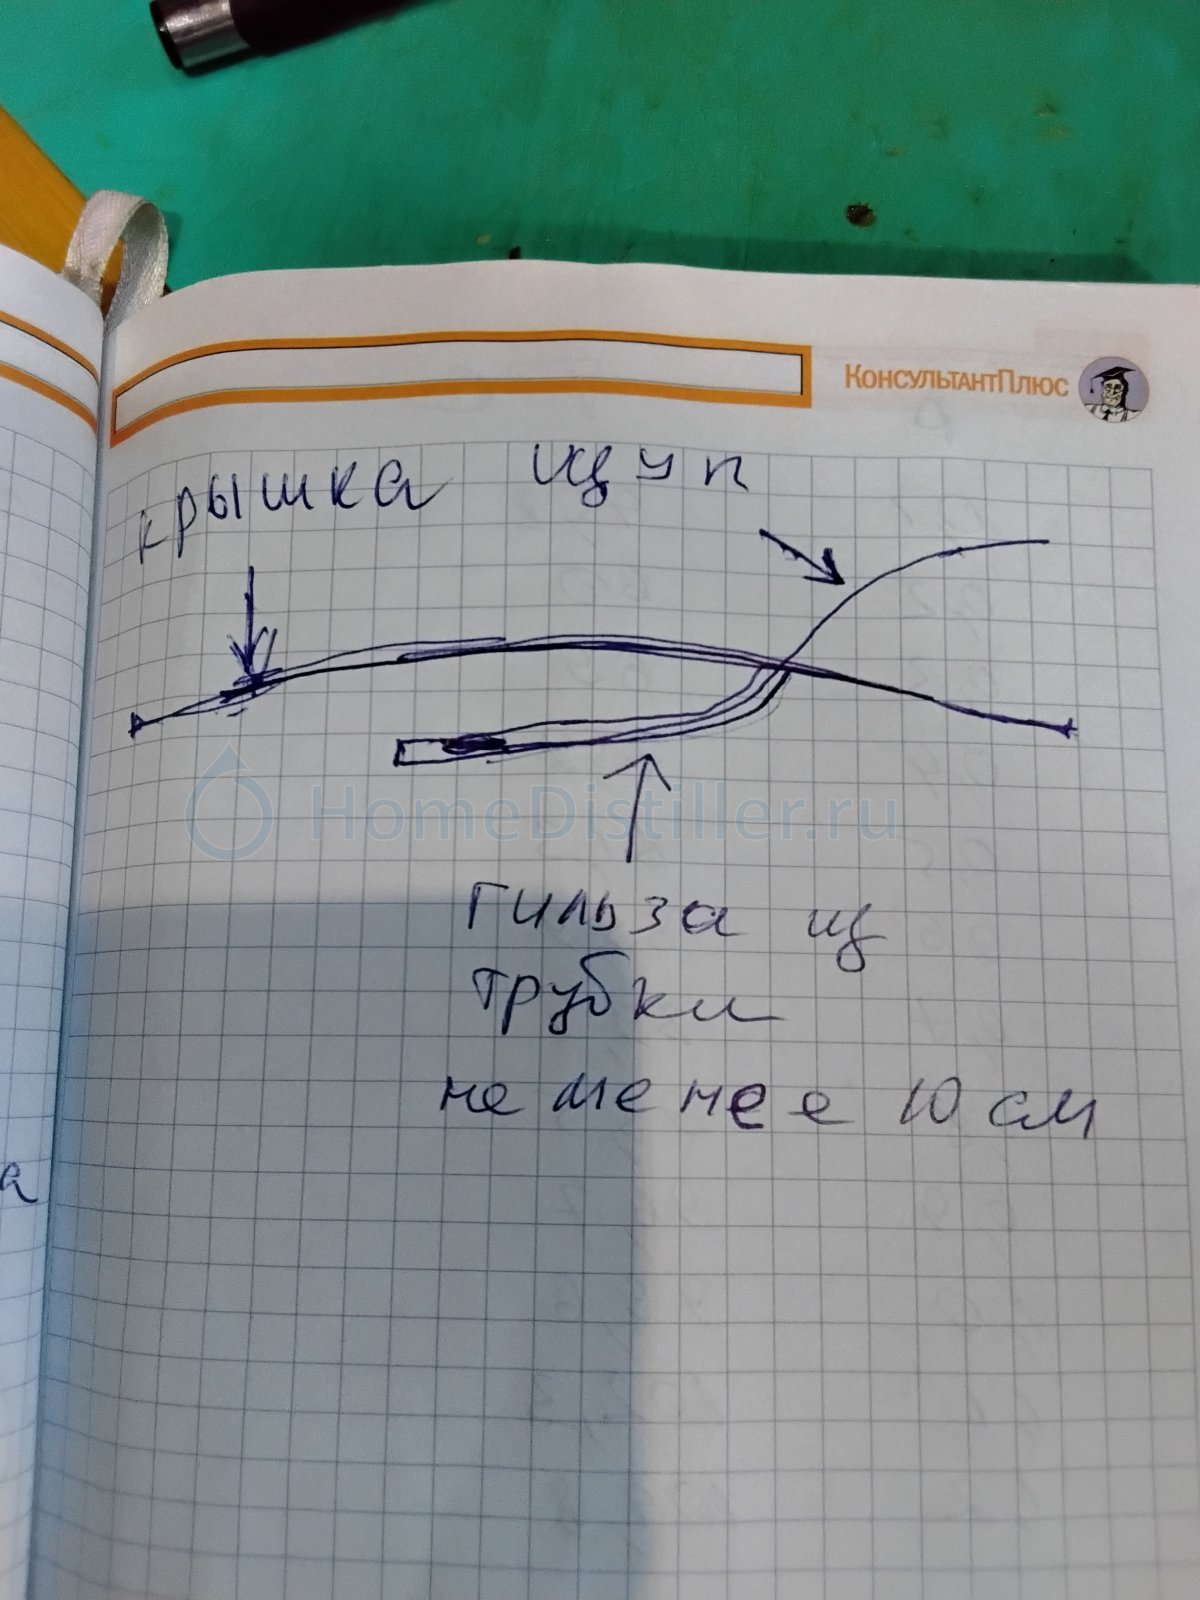 КонсультантПлюс
крышка щуп
HomeDistiller.ru
гильза из
трубки
не менее 10 см
а